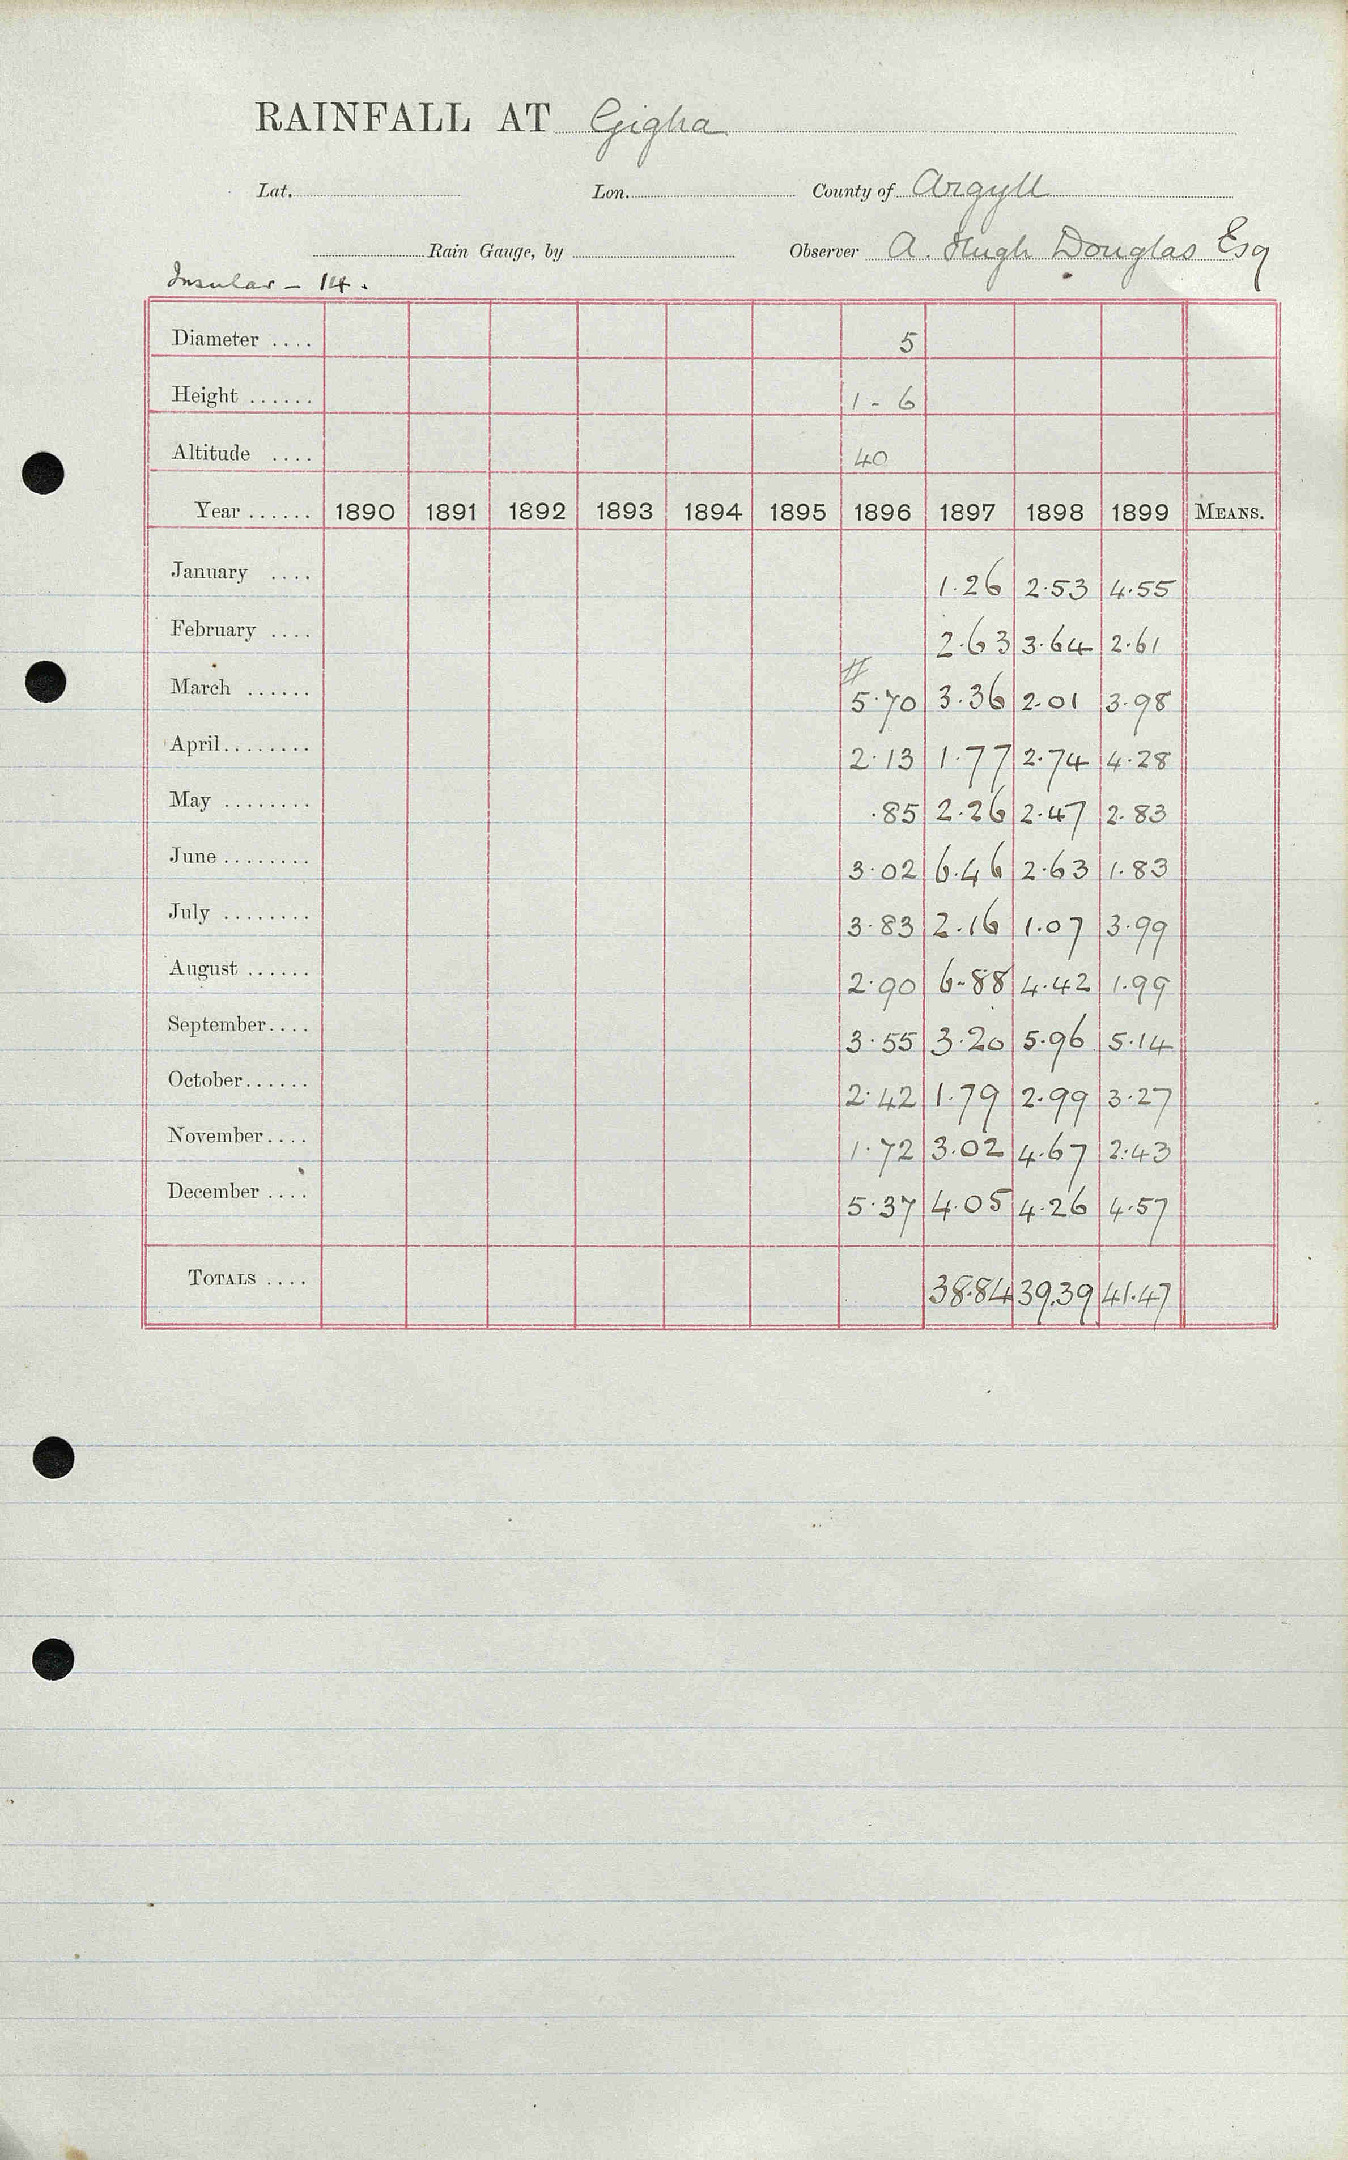 RAINFALL AT Gigha
Lat. Lon. County of Argyll
Rain Gauge, by Observer A. Hugh Douglas Esq
Insular - 14.
Diameter .... 5
Height ...... 1 - 6
Altitude .... 40
Year ...... 1890 1891 1892 1893 1894 1895 1896 1897 1898 1899 MEANS.
January .... 1.26 2.53 4.55
February .... 2.63 3.64 2.61
#
March ...... 5.70 3.36 2.01 3.98
April........ 2.13 1.77 2.74 4.28
May ........ .85 2.26 2.47 2.83
June ........ 3.02 6.46 2.63 1.83
July ........ 3.83 2.16 1.07 3.99
August ...... 2.90 6.88 4.42 1.99
September.... 3.55 3.20 5.96 5.14
October...... 2.42 1.79 2.99 3.27
November.... 1.72 3.02 4.67 2.43
December .... 5.37 4.05 4.26 4.57
TOTALS .... 38.84 39.39 41.47